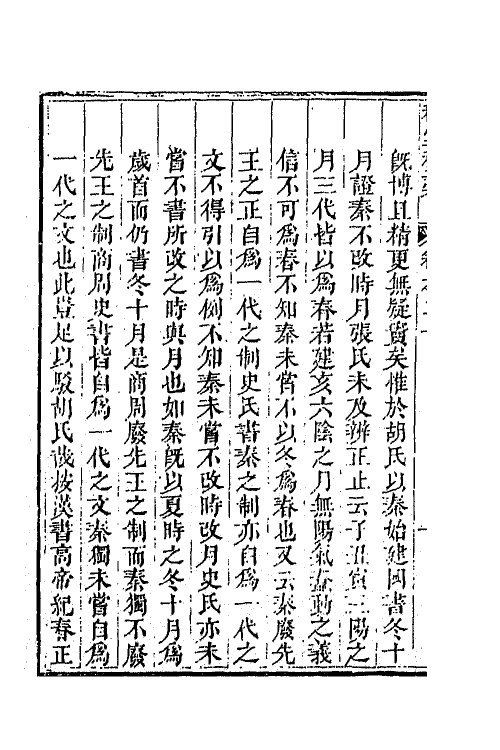 既博且精更無疑竇矣惟於胡氏以秦始建國書冬十
月證秦不改時月張氏未及辨正止云子丑寅三陽之
月三代皆以爲春若建亥六陰之月無陽氣蠢動之義
信不可爲春不知秦未嘗不以冬爲春也又云秦廢先
王之正自爲一代之制史氏書秦之制亦自爲一代之
文不得引以爲例不知秦未嘗不改時改月史氏亦未
嘗不書所改之時與月也如秦旣以夏時之冬十月爲
歲首而仍書冬十月是商周廢先王之制而秦獨不廢
先王之制商周史書皆自爲一代之文秦獨未嘗自爲
一代之文也此豈足以駁胡氏哉按漢書高帝紀春正